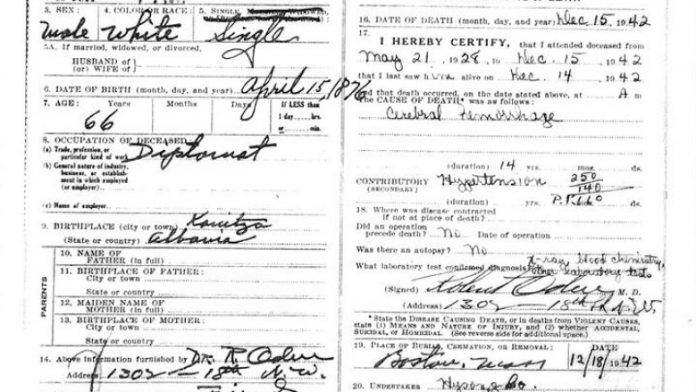 3. SEX: 4. COLOR OR RACE: 5. Single,
Male White Single
5A. If married, widowed, or divorced,
HUSBAND of
(or) WIFE of
6. DATE OF BIRTH (month, day, and year) April 15, 1876
7. AGE: Years Months Days If LESS than
66 1 day hrs.
or min.
8. OCCUPATION OF DECEASED
(a) Trade, profession, or
particular kind of work Diplomat
(b) General nature of industry,
business, or establish-
ment in which employed
(or employer)
(c) Name of employer
9. BIRTHPLACE (city or town) Konitza
(State or country) Albania
PARENTS
10. NAME OF
FATHER (in full)
11. BIRTHPLACE OF FATHER:
City or town
State or country
12. MAIDEN NAME OF
MOTHER (in full)
13. BIRTHPLACE OF MOTHER:
City or town
State or country
14. Above information furnished by Dr. R
1302 - 18th N.W.
16. DATE OF DEATH (month, day, and year) Dec 15, 1942
17.
I HEREBY CERTIFY, that I attended deceased from
May 21 1928 to Dec 15 1942
that I last saw him alive on Dec 14 1942
and that death occurred, on the date stated above, at A m
The CAUSE OF DEATH was as follows:
Cerebral Hemorrhage
(duration) 14 yrs. mos. ds.
CONTRIBUTORY Hypertension 250
(SECONDARY) 140
(duration) yrs. P.P. 110
18. Where was disease contracted
if not at place of death?
Did an operation
precede death? No Date of operation
Was there an autopsy? No
X-ray blood chemistry
What laboratory test confirmed diagnosis? other laboratory tests
(Signed) M. D.
(Address) 1302 - 18th St N.W.
State the DISEASE CAUSING DEATH, or in deaths from VIOLENT CAUSES,
state (1) MEANS AND NATURE OF INJURY, and (2) whether ACCIDENTAL,
SUICIDAL, or HOMICIDAL. (See reverse side for additional space.)
19. PLACE OF BURIAL, CREMATION, OR REMOVAL: DATE
Boston, Mass 12/18/1942
20. UNDERTAKER Hysong